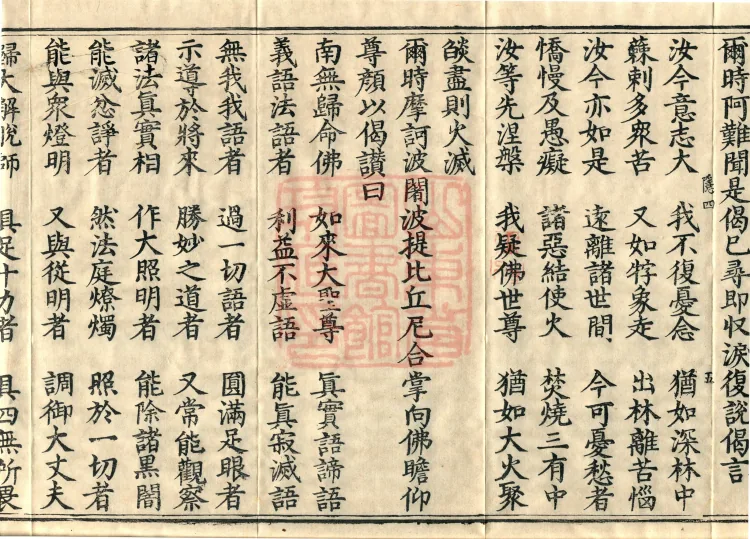 爾時阿難聞是偈巳尋即収淚復說偈言
隱四
五
汝今意志大 我不復憂念 猶如深林中
蕀刺多衆苦 又如牸象走 出林離苦惱
汝今亦如是 遠離諸世間 今可憂愁者
憍慢及愚癡 諸惡結使火 焚燒三有中
汝等先涅槃 我疑佛世尊 猶如大火聚
燄盡則火滅
爾時摩訶波闍波提比丘尼合掌向佛瞻仰
尊顏以偈讚曰
南無歸命佛 如來大聖尊 眞實語諦語
義語法語者 利益不虛語 能眞寂滅語
無我我語者 過一切語者 圓滿足眼者
示導於將來 勝妙之道者 又常能觀察
諸法眞實相 作大照明者 能除諸黑闇
能滅忿諍者 然法庭燎燭 照於一切者
能與衆燈明 又與從明者 調御大丈夫
歸大解脫師 具足十力者 具四無所畏